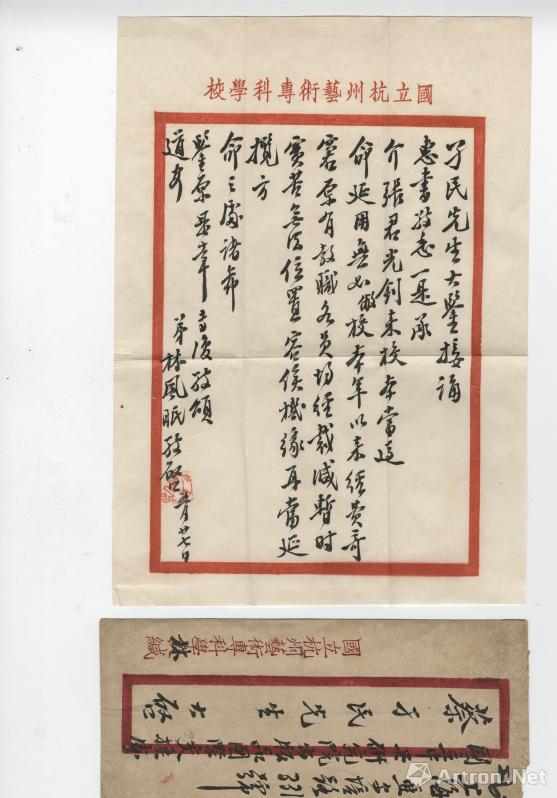 國立杭州藝術專科學校
孑民先生大鑒接誦
惠書敬悉一是承
介張君光釗來校本當遵
命延用無如敝校本年以來經費奇
窘原有教職各員均經裁減暫時
實苦無法位置容俟機緣再當延
攬方
命之處諸希
鑒原是幸專復敬頌
道安
弟林風眠敬啓 五月廿七日
國立杭州藝術專科學 林緘
蔡孑民先生大啓
上海亞爾培路331號
Artron.Net